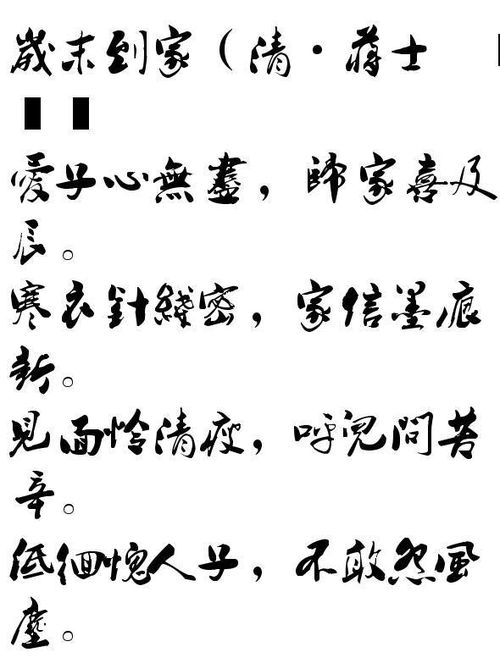 歲末到家（清·蔣士
愛子心無盡，歸家喜及
辰。
寒衣針綫密，家信墨痕
新。
見面憐清瘦，呼兒問苦
辛。
低徊愧人子，不敢怨風
塵。